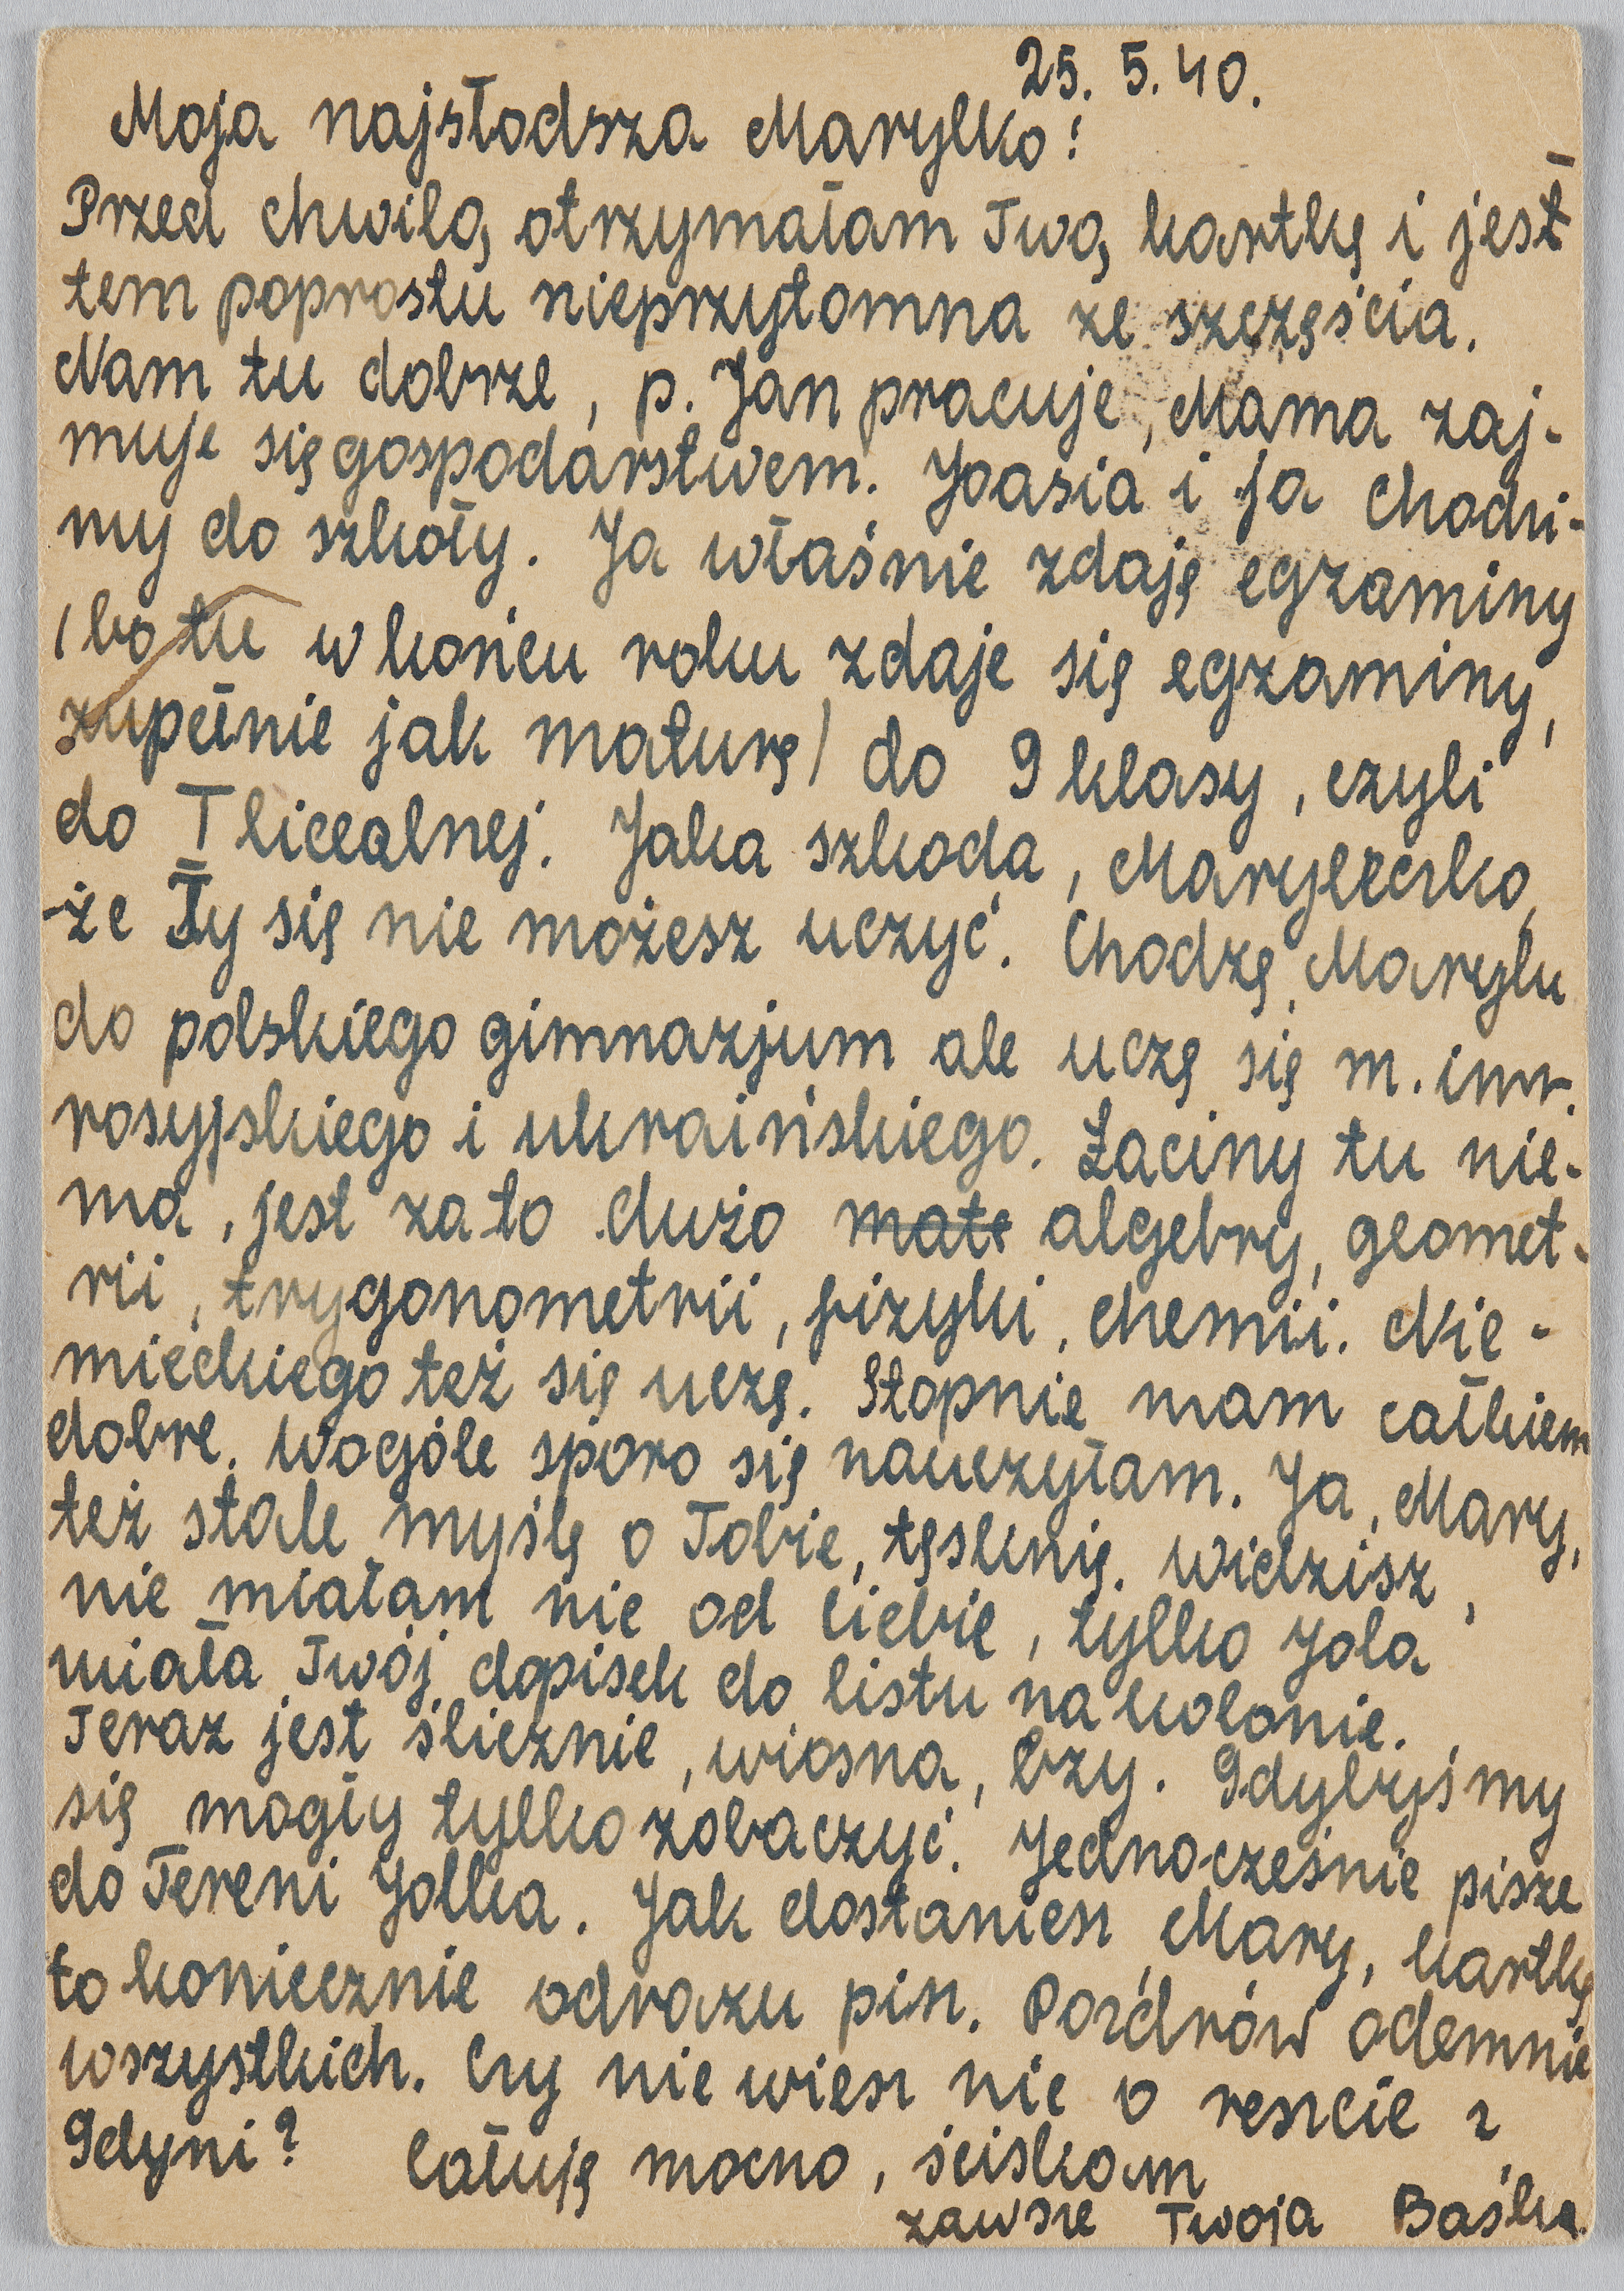 25. 5. 40.
Moja najsłodsza Marylko!
Przed chwilą otrzymałam Twą kartkę i jest
tem poprostu nieprzytomna ze szczęścia.
Nam tu dobrze, p. Jan pracuje, Mama zaj-
muje się gospodarstwem. Joasia i ja chodzi-
my do szkoły. Ja właśnie zdaję egzaminy
/bo tu w końcu roku zdaje się egzaminy,
zupełnie jak maturę/ do 9 klasy, czyli
do I licealnej. Jaka szkoda, Maryleczko,
że Ty się nie możesz uczyć. Chodzę, Marylu
do polskiego gimnazjum ale uczę się m. inn.
rosyjskiego i ukraińskiego. Łaciny tu nie-
ma, jest za to dużo mate algebry, geomet-
rii, trygonometrii, fizyki, chemii. Nie-
mieckiego też się uczę. Stopnie mam całkiem
dobre. Wogóle sporo się nauczyłam. Ja, Mary,
też stale myślę o Tobie, tęsknię. Widzisz,
nie miałam nic od Ciebie, tylko Jola
miała Twój dopisek do listu na kolonie.
Teraz jest ślicznie, wiosna, bzy. Gdybyśmy
się mogły tylko zobaczyć. Jednocześnie pisze
do Tereni Jolka. Jak dostaniesz, Mary, kartkę
to koniecznie odrazu pisz. Pozdrów odemnie
wszystkich. Czy nie wiesz nic o reszcie z
Gdyni? Całuję mocno, ściskam
zawsze Twoja Baśka.